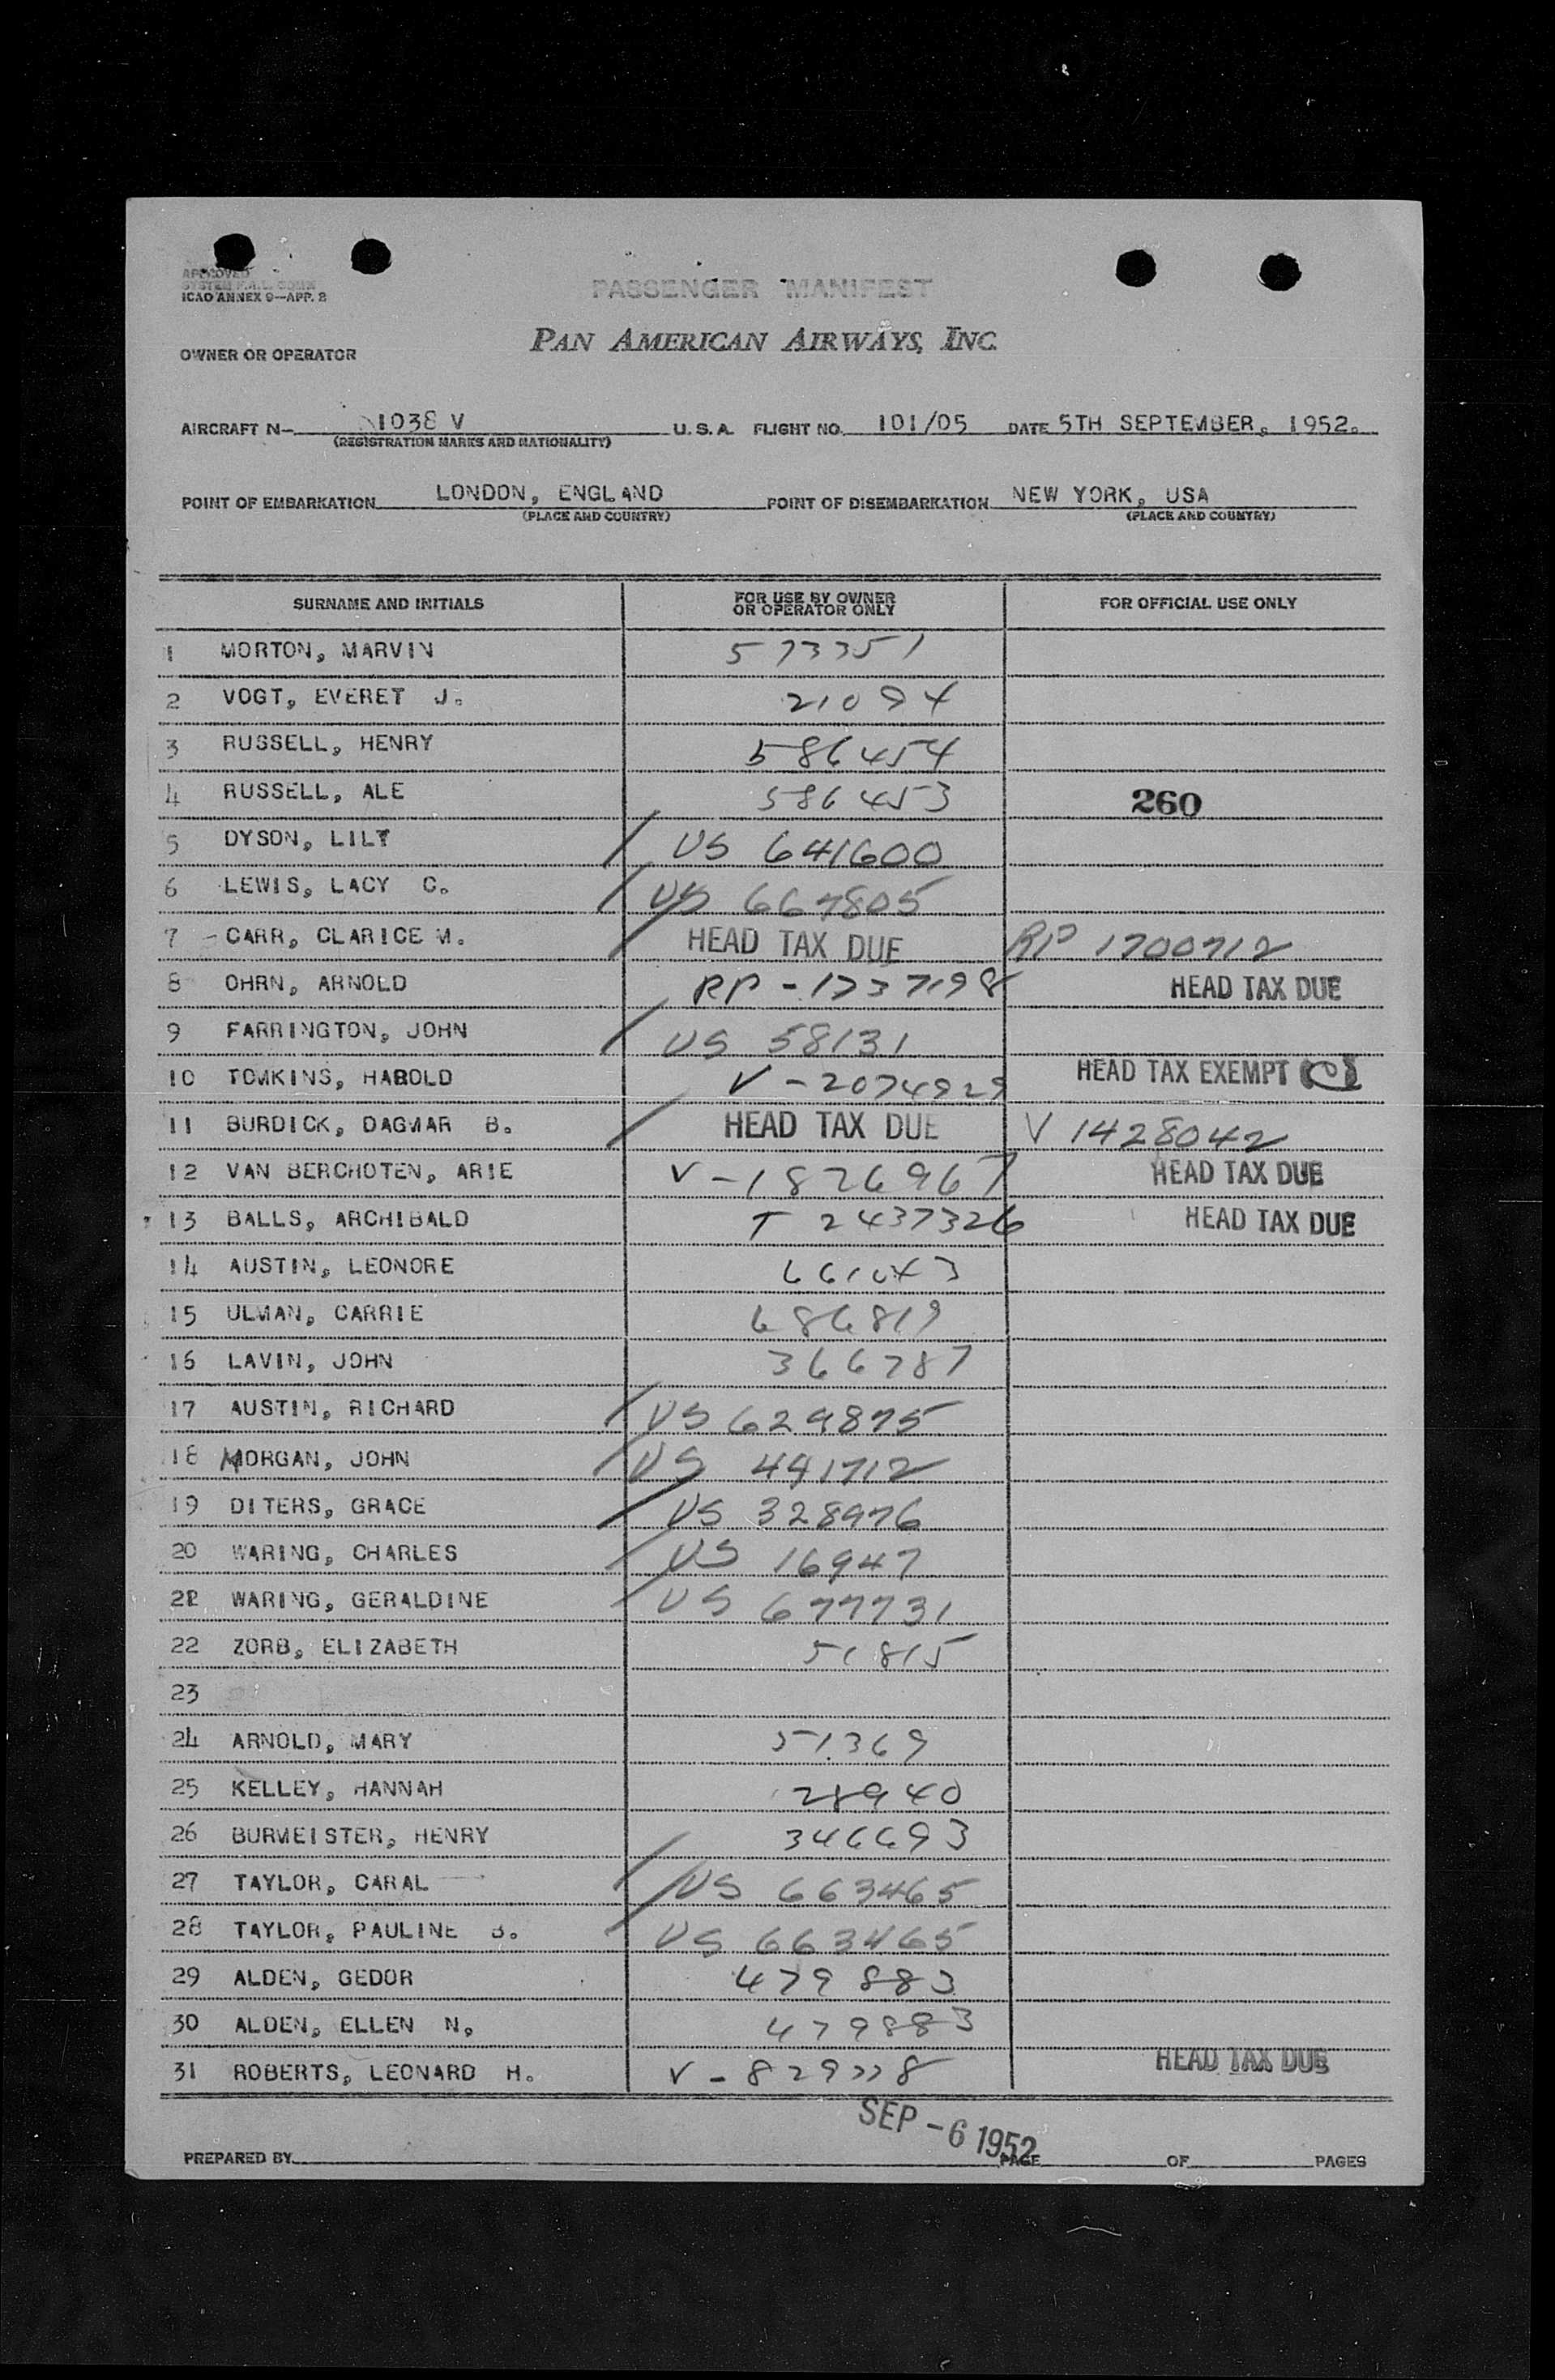 APPROVED
ICAO ANNEX 9—APP. 2
PASSENGER MANIFEST
PAN AMERICAN AIRWAYS, INC.
OWNER OR OPERATOR
AIRCRAFT N- 1038 V U.S.A. FLIGHT NO. 101/05 DATE 5TH SEPTEMBER, 1952.
(REGISTRATION MARKS AND NATIONALITY)
POINT OF EMBARKATION LONDON, ENGLAND POINT OF DISEMBARKATION NEW YORK, USA
(PLACE AND COUNTRY) (PLACE AND COUNTRY)
SURNAME AND INITIALS FOR USE BY OWNER OR OPERATOR ONLY FOR OFFICIAL USE ONLY
1 MORTON, MARVIN 573351
2 VOGT, EVERET J. 21094
3 RUSSELL, HENRY 586454
4 RUSSELL, ALE 586453 260
5 DYSON, LILY / US 641600
6 LEWIS, LACY C. / US 667805
7 - CARR, CLARICE M. / HEAD TAX DUE RP 1700712
8 OHRN, ARNOLD RP - 1737198 HEAD TAX DUE
9 FARRINGTON, JOHN / US 58131
10 TOMKINS, HAROLD V - 2074929 HEAD TAX EXEMPT
11 BURDICK, DAGMAR B. / HEAD TAX DUE V 1428042
12 VAN BERCHOTEN, ARIE V - 1826967 HEAD TAX DUE
13 BALLS, ARCHIBALD T 2437326 HEAD TAX DUE
14 AUSTIN, LEONORE 661043
15 ULMAN, CARRIE 686819
16 LAVIN, JOHN 366787
17 AUSTIN, RICHARD / US 629875
18 MORGAN, JOHN / US 441712
19 DITERS, GRACE / US 328976
20 WARING, CHARLES / US 16947
22 WARING, GERALDINE / US 677731
22 ZORB, ELIZABETH 51815
23
24 ARNOLD, MARY 51369
25 KELLEY, HANNAH 28940
26 BURMEISTER, HENRY 346693
27 TAYLOR, CARAL / US 663465
28 TAYLOR, PAULINE B. / US 663465
29 ALDEN, GEDOR 479883
30 ALDEN, ELLEN N. 479883
31 ROBERTS, LEONARD H. V - 829778 HEAD TAX DUE
SEP - 6 1952
PREPARED BY PAGE OF PAGES